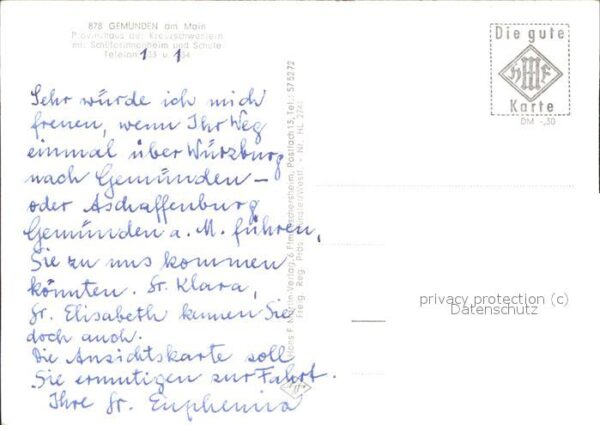 878 GEMÜNDEN am Main
Provinzhaus der Kreuzschwestern
mit Schülerinnenheim und Schule
Telefon 133 u. 134
Sehr würde ich mich
freuen, wenn Ihr Weg
einmal über Würzburg
nach Gemünden –
oder Aschaffenburg
Gemünden a. M. führen,
Sie zu uns kommen
könnten. Sr. Klara,
Sr. Elisabeth kennen Sie
doch auch.
Die Ansichtskarte soll
Sie ermutigen zur Fahrt.
Ihre Sr. Euphemia
Verlag, 6 Ffm.-Eschersheim, Postfach 15, Tel.: 57 52 72
Freig. Reg. Präs. Münster/Westf. - Nr. HL 2741
Die gute
H F
Karte
DM -,30
privacy protection (c)
Datenschutz